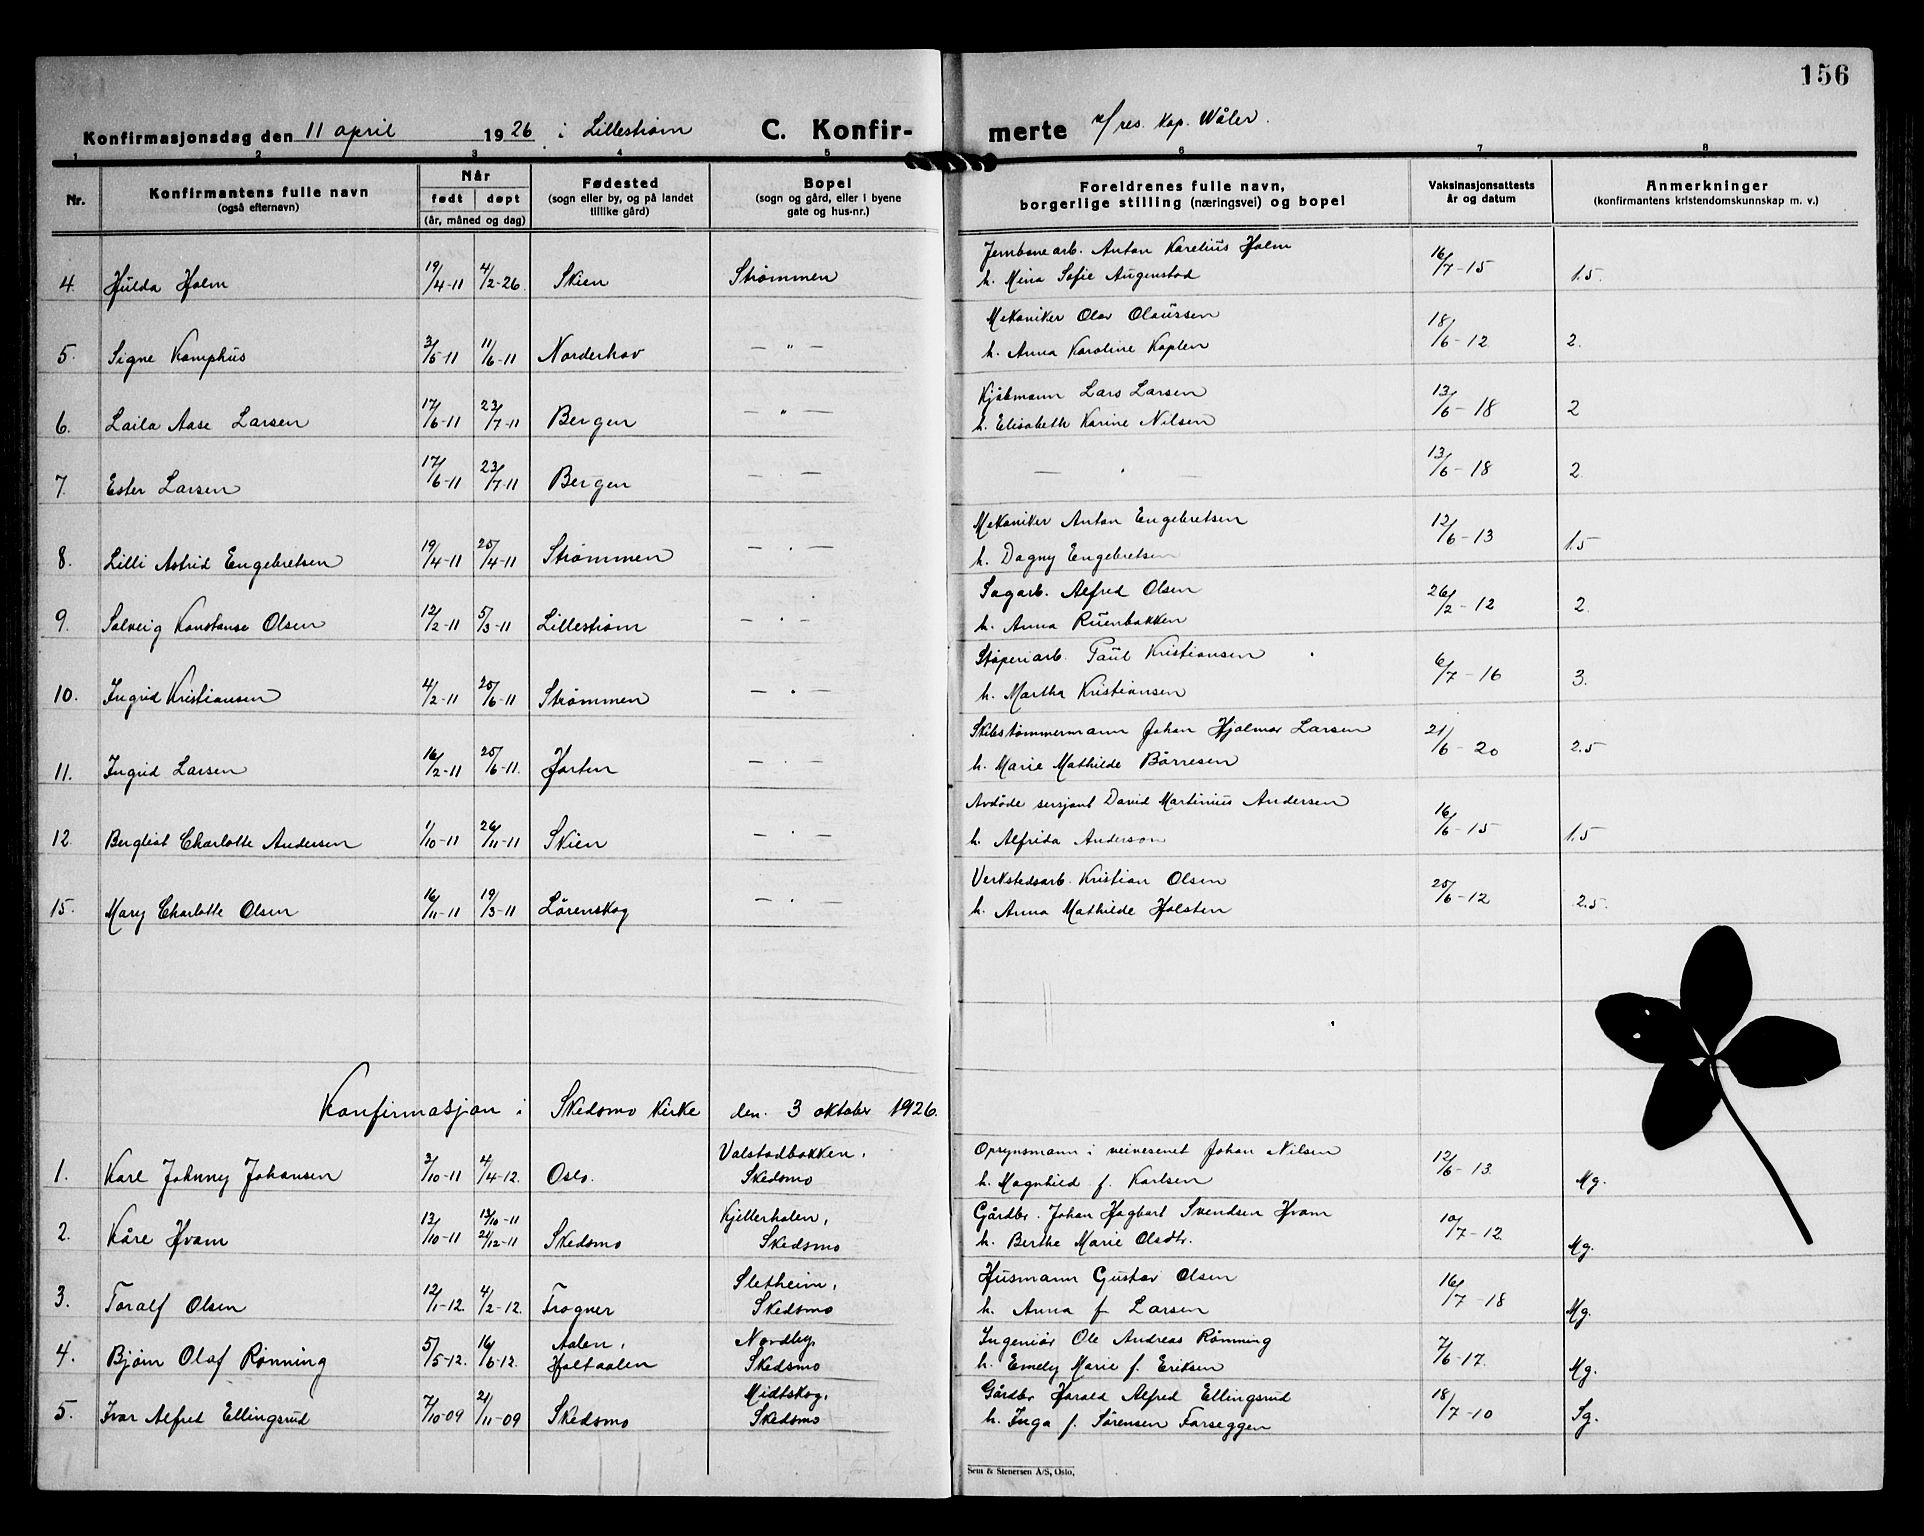 156
Konfirmasjonsdag den 11 april 1926 i Lillestrøm C. Konfirmerte v/ res. kap. Wåler.
1 2 3 4 5 6 7 8
Nr. Konfirmantens fulle navn (også efternavn) Når født døpt (år, måned og dag) Fødested (sogn eller by, og på landet tillike gård) Bopel (sogn og gård, eller i byene gate og hus-nr.) Foreldrenes fulle navn, borgerlige stilling (næringsvei) og bopel Vaksinasjonsattests år og datum Anmerkninger (konfirmantens kristendomskunnskap m. v.)
Jernbanearb. Anton Karelius Holm
4. Hulda Holm 19/4-11 4/2-26. Skien Strømmen h. Mina Sofie Augenstad 16/7-15 1.5.
Mekaniker Olav Olaussen
5. Signe Kamphus 3/5-11 11/6-11 Norderhov — " — h. Anna Karoline Kaplen 18/6-12 2.
Kjøbmann Lars Larsen
6. Laila Aase Larsen 17/6-11 23/7-11 Bergen — " — h. Elisabeth Karine Nilsen 13/6-18 2
7. Ester Larsen 17/6-11 23/7-11 Bergen — . — — . 13/6-18 2.
Mekaniker Anton Engebretsen
8. Lilli Astrid Engebretsen 19/4-11 25/4-11 Strømmen — . — h. Dagny Engebretsen 12/6-13 1.5
Sagarb. Alfred Olsen
9. Solveig Konstanse Olsen 12/2-11 5/3-11 Lillestrøm — . — h. Anna Ruenbakken 26/2-12 2.
Støperiarb. Paul Kristiansen
10. Ingrid Kristiansen 4/2-11 25/6-11 Strømmen — . — h. Martha Kristiansen 6/7-16 3.
Skibstømmermann Johan Hjalmar Larsen
11. Ingrid Larsen 16/2-11 25/6-11. Horten — . — h. Marie Mathilde Børresen 21/6-20 2.5
Avdøde sersjant David Martinius Andersen
12. Bergliot Charlotte Andersen 1/10-11 26/11-11 Skien — . — h. Alfrida Anderson 16/6-15 1.5
Verkstedsarb. Kristian Olsen
15. Mary Charlotte Olsen 16/11-11 19/3-11 Lørenskog — . — h. Anna Mathilde Holsten 25/6-12 2.5.
Konfirmasjon i Skedsmo Kirke den 3 oktober 1926.
Valstadbakken, Opsynsmann i veivesenet Johan Nilsen
1. Karl Johnny Johansen 3/10-11 4/4-12. Oslo. Skedsmo h. Magnhild f. Karlsen 12/6-13. Mg.
13/10-11 Kjellerholen, Gårdbr. Johan Hagbart Svendsen Hvam
2. Kåre Hvam 13/10-11 21/12-11 Skedsmo Skedsmo h. Berthe Marie Olsdtr. 10/7-12 Mg.
Sletheim, Husmann Gustav Olsen
3. Toralf Olsen 12/1-12. 4/2-12. Frogner Skedsmo h. Anna f. Larsen 16/7-18 Mg.
Aalen, Nordby, Ingeniør Ole Andreas Rønning
4. Bjørn Olaf Rønning 5/5-12. 16/6-12. Holtaalen Skedsmo h. Emely Marie f. Eriksen 7/6-17. Mg.
Midtskog, Gårdbr Harald Alfred Ellingsrud
5. Ivar Alfred Ellingsrud 7/10-09 21/11-09 Skedsmo Skedsmo h. Inga f. Sørensen Farseggen 18/7-10 Sg.
Sem & Stenersen A/S, Oslo.